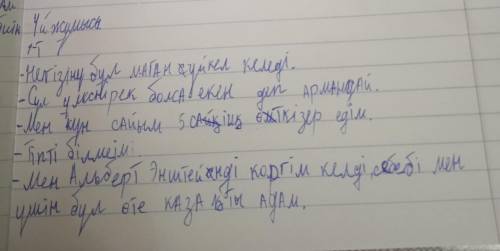 Үй жұмысы.
1-Т
-Негізіну бұл маған күйкел келеді.
-Сұл үлкенірек болса екен деп армандай.
-Мен күн сайым 5 өткізер едім.
-Тіпті білмейм
-Мен Альберт Энштейнді коргім келді, себебі мен
үшін бұл өте адам.